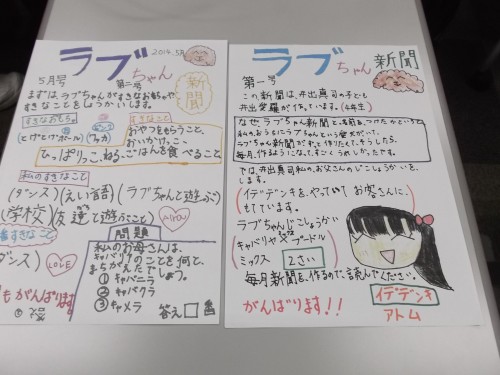 ラブちゃん
2014.5月
新聞
5月号
第二号
まずは、ラブちゃんがすきなおもちゃや、
すきなことをしょうかいします。
すきなおもちゃ
すきなこと
おやつをもらうこと、
おいかけっこ、
ひっぱりっこ、ねる、ごはんを食べること
私のすきなこと
(ダンス)(えい語)(ラブちゃんと遊ぶ)
(学校)(友達と遊ぶこと)
すきなこと
ダンス)
LOVE
もがんばります
問題
私のお母さんは、
キャバリアのことを何と、
まちがえたでしょう。
①キャバニラ
②キャバクラ
③キャメラ
答え
ラブちゃん
新聞
第一号
この新聞は、井出真司の子ども
井出愛羅が作っています。(4年生)
なぜ、ラブちゃん新聞と名前をつけたかというと
私のおうちにラブちゃんという愛犬がいて、
ラブちゃん新聞がずっと作りたくて、そしたら、
毎月、作るようになって、すごくうれしかったです。
では、井出真司私のお父さんのしょうかいをし
ます。
(イデデンキを、やっていて お客さんに、
もてています。
ラブちゃんじこしょうかい
(キャバリヤ×プードル
ミックス
2さい
毎月新聞を、作るので、読んでください。
がんばります!!
イデデンキ
アトム